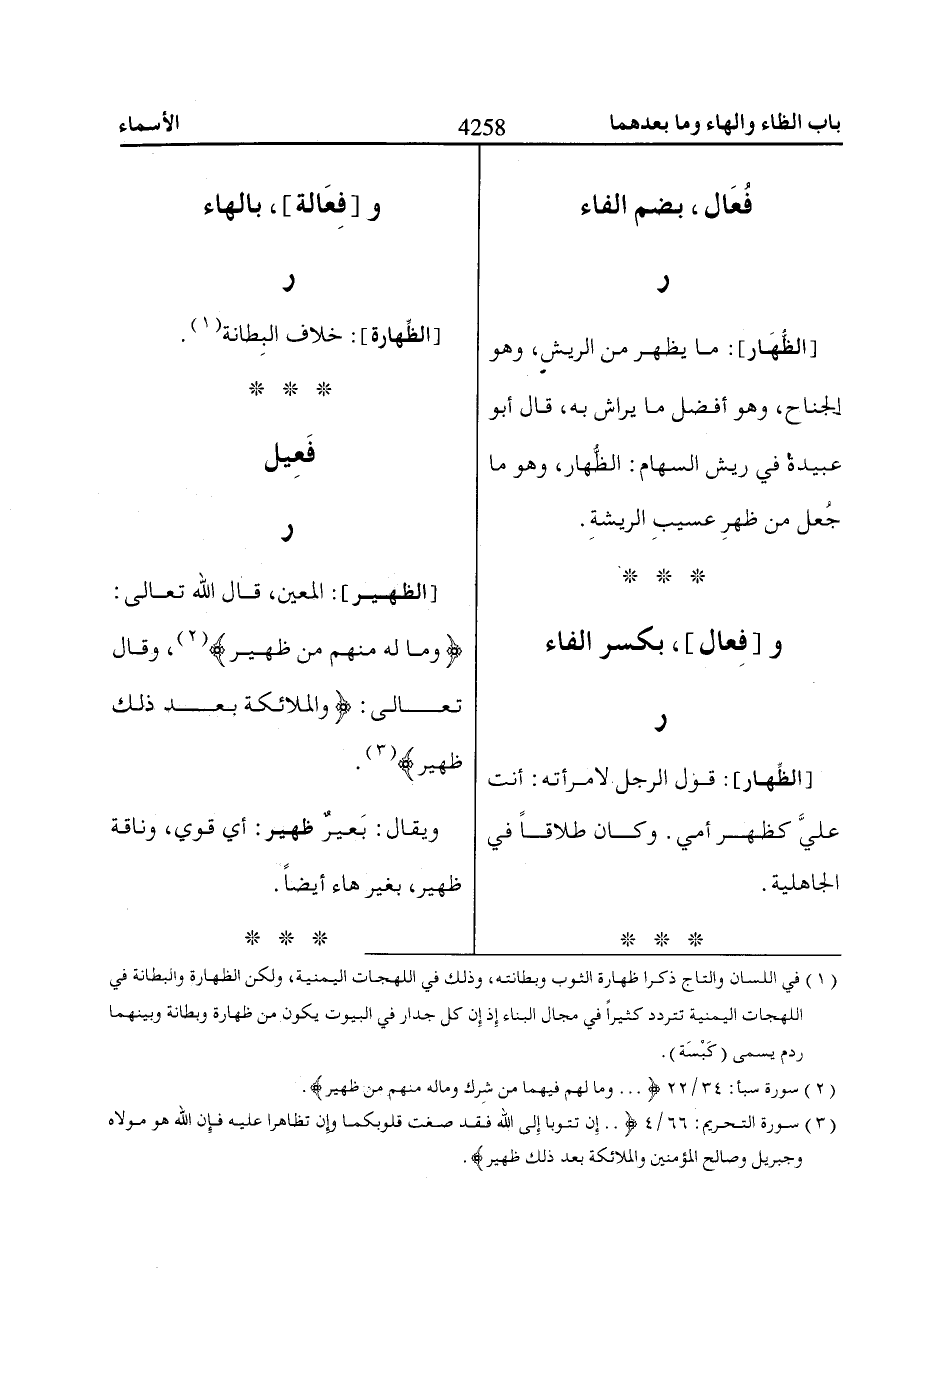 باب الظاء والهاء وما بعدهما
4258
الأسماء
فُعَال، بضم الفاء
ر
[الظُّهَار]: ما يظهر من الريش، وهو
الجناح، وهو أفضل ما يراش به، قال أبو
عبيدة في ريش السهام: الظُّهار، وهو ما
جُعل من ظهرِ عسيبِ الريشةِ.
* * *
و [فِعال]، بكسر الفاء
ر
[الظِّهار]: قول الرجل لامرأته: أنت
عليَّ كظهر أمي. وكان طلاقاً في
الجاهلية.
* * *
و [فِعَالة]، بالهاء
ر
[الظِّهارة]: خلاف البِطانة(١).
* * *
فَعِيل
ر
[الظهير]: المعين، قال الله تعالى:
﴿وما له منهم من ظهير﴾(٢)، وقال
تعالى: ﴿والملائكة بعد ذلك
ظهير﴾(٣).
ويقال: بَعيرٌ ظهير: أي قوي، وناقة
ظهير، بغير هاء أيضاً.
* * *
(١) في اللسان والتاج ذكرا ظهارة الثوب وبطانته، وذلك في اللهجات اليمنية، ولكن الظهارة والبطانة في
اللهجات اليمنية تتردد كثيراً في مجال البناء إذ إن كل جدار في البيوت يكون من ظهارة وبطانة وبينهما
ردم يسمى (كَبْسَة).
(٢) سورة سبأ: ٢٢/٣٤ ﴿... وما لهم فيهما من شرك وماله منهم من ظهير﴾.
(٣) سورة التحريم: ٤/٦٦ ﴿.. إن تتوبا إلى الله فقد صغت قلوبكما وإن تظاهرا عليه فإن الله هو مولاه
وجبريل وصالح المؤمنين والملائكة بعد ذلك ظهير﴾.